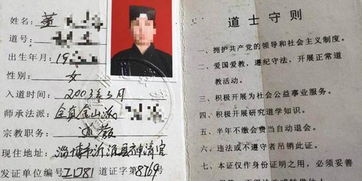 董
出生年月 19
性别： 女
入道时间： 2003年5月
师承法派： 全真金山派
宗教职务： 道教
现住地址： 淄博市沂源县神清宫
发证单位编号 道证字第8769号
道士守则
一、拥护共产党的领导和社会主义制度。
二、爱国爱教、遵纪守法、开展正常道
教活动。
三、积极开展为社会公益事业服务。
四、积极开展研究道学知识。
五、半年不缴会费当自动退会。
六、违法或不遵守者吊销此证。
七、本证仅作身份证明之用，必须妥善